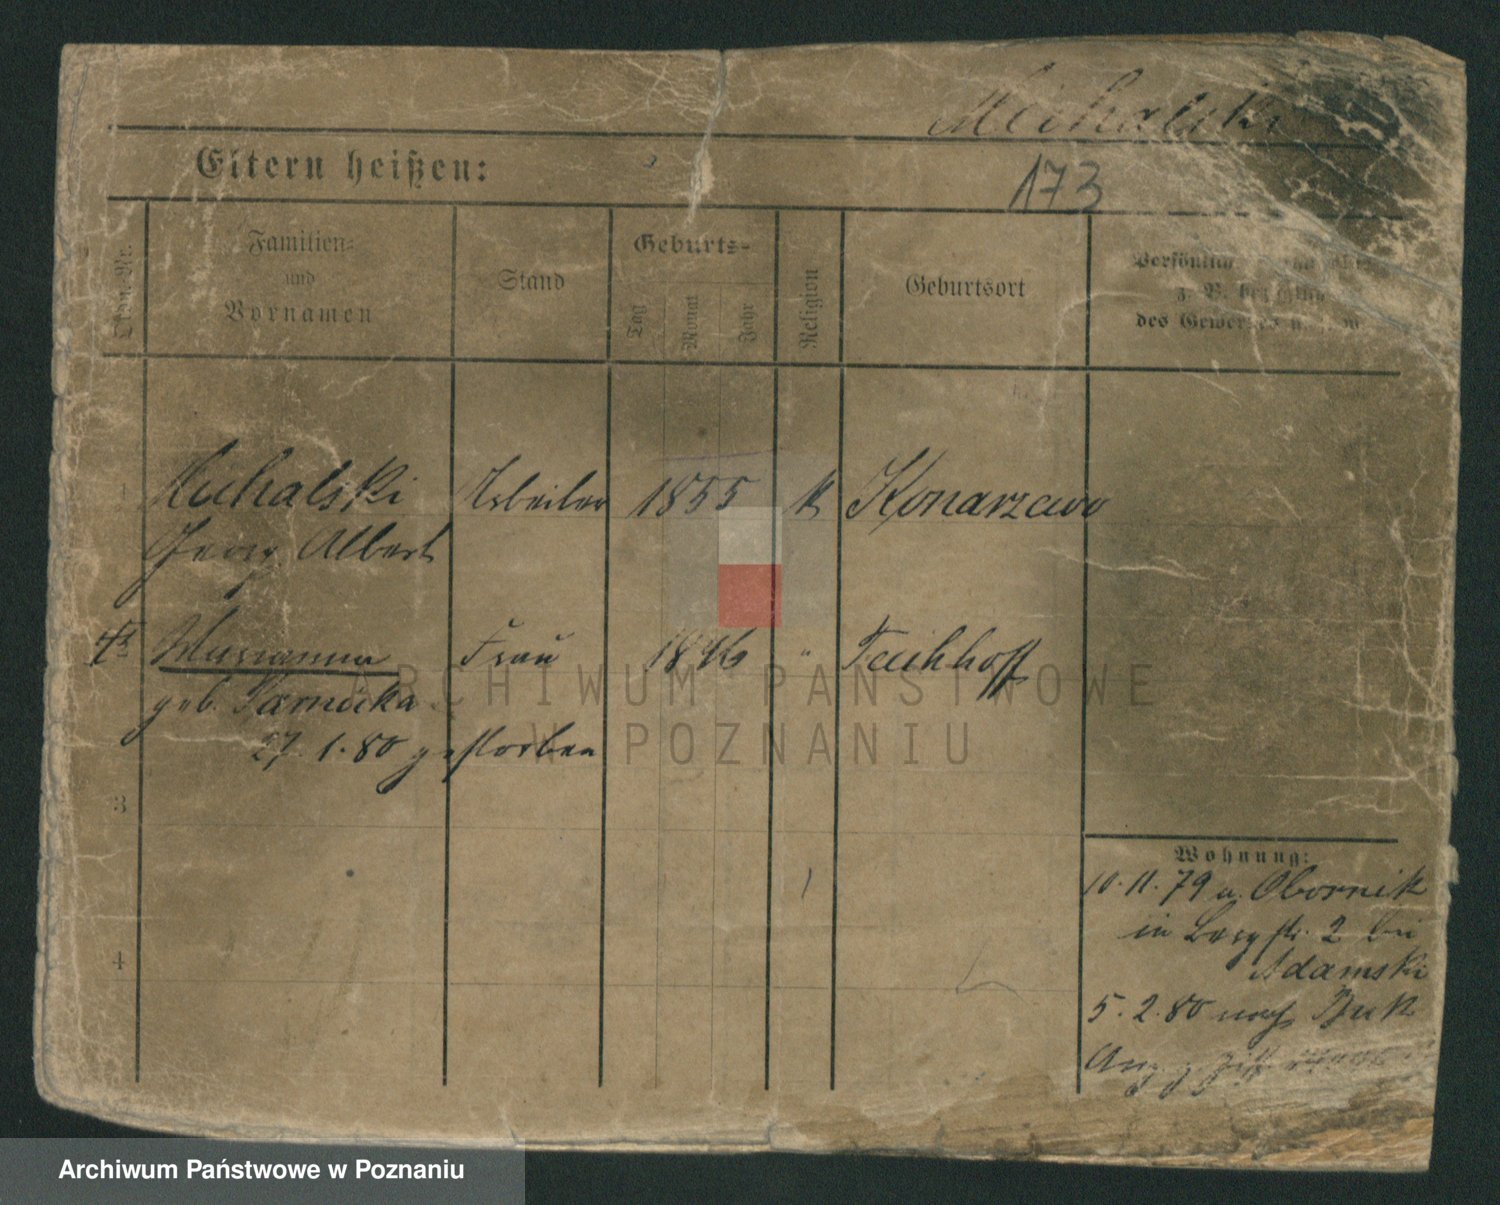 Michalski
Eltern heißen:
173
Ordn. Nr.
Familien-
und
Vornamen
Stand
Geburts-
Tag
Monat
Jahr
Religion
Geburtsort
z. B. bezüglich
des Gewerbes
1 Michalski Arbeiter 1855 k Konarzewo
Georg Albert
Marianna Frau 1846 " Teichhoff
geb. Tarnicka
27. 1. 80 gestorben
3
4
Wohnung:
10. 11. 79 a. Obornik
in Bergstr. 2 bei
Adamski
5. 2. 80 nach Buk
ARCHIWUM PAŃSTWOWE
W POZNANIU
Archiwum Państwowe w Poznaniu